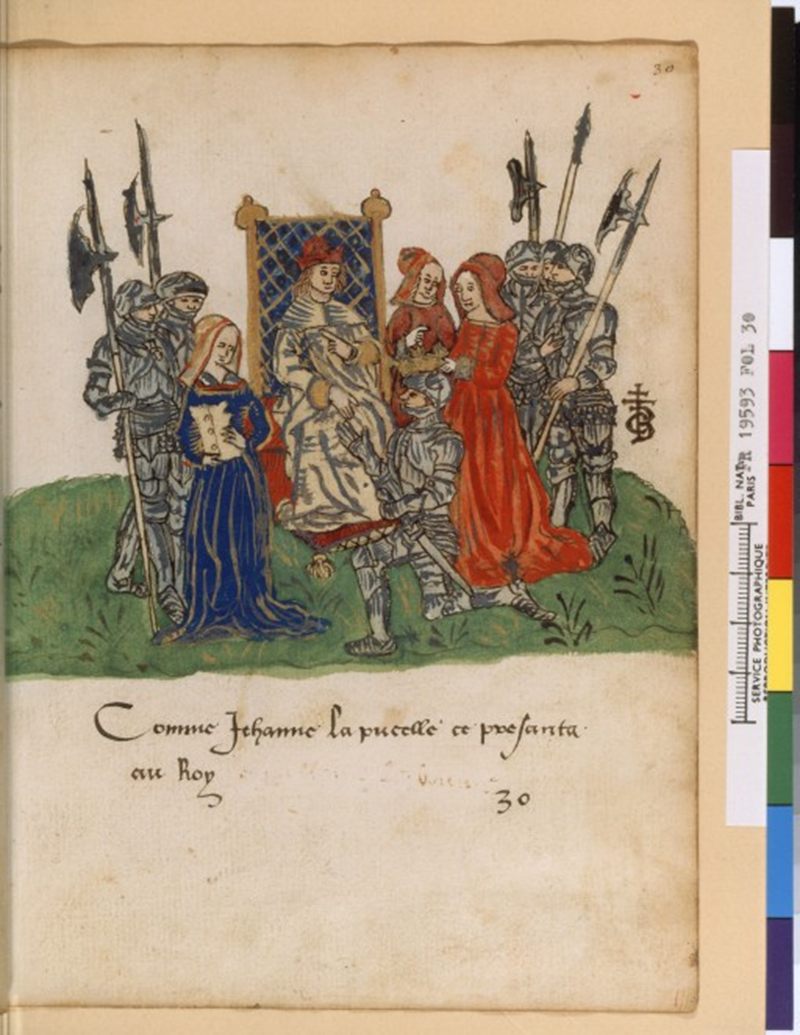 30
Comme Jehanne la pucelle ce presanta
au Roy
30
BIBL. NAT.
PARIS
FR 19593 FOL 30
SERVICE PHOTOGRAPHIQUE